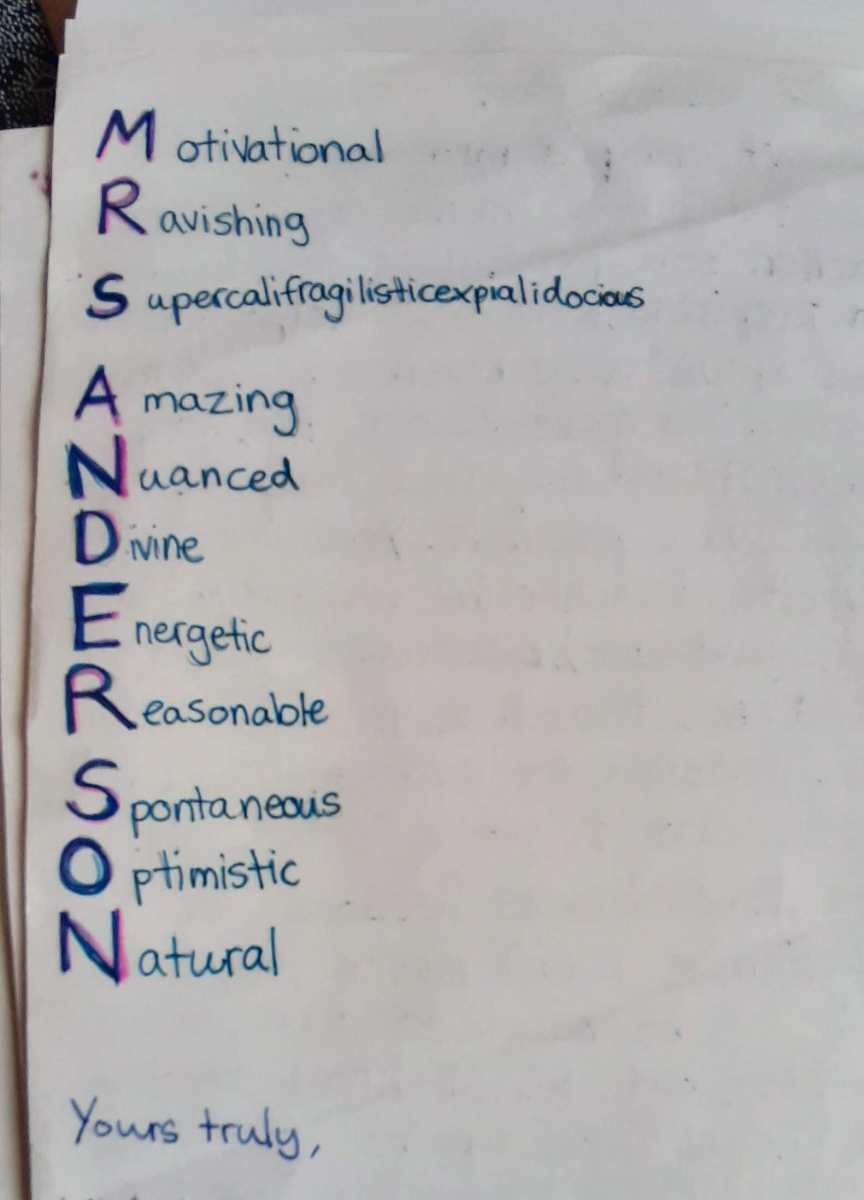 Motivational
Ravishing
Supercalifragilisticexpialidocious
Amazing
Nuanced
Divine
Energetic
Reasonable
Spontaneous
Optimistic
Natural
Yours truly,